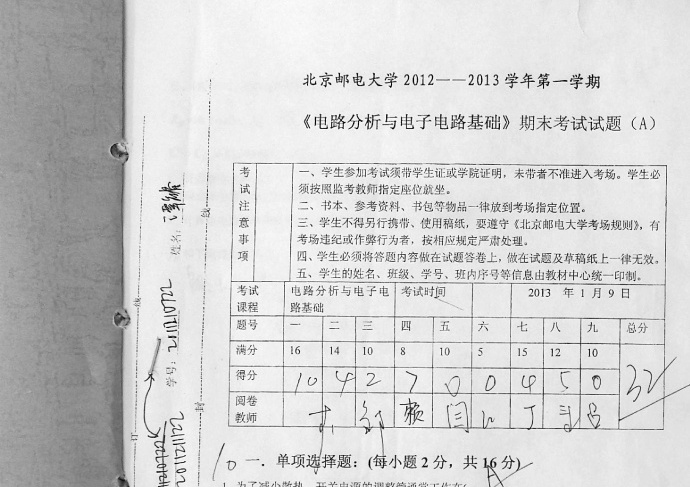 北京邮电大学 2012——2013 学年第一学期
《电路分析与电子电路基础》期末考试试题（A）
考试注意事项
一、学生参加考试须带学生证或学院证明，未带者不准进入考场。学生必
须按照监考教师指定座位就坐。
二、书本、参考资料、书包等物品一律放到考场指定位置。
三、学生不得另行携带、使用稿纸，要遵守《北京邮电大学考场规则》，有
考场违纪或作弊行为者，按相应规定严肃处理。
四、学生必须将答题内容做在试题答卷上，做在试题及草稿纸上一律无效。
五、学生的姓名、班级、学号、班内序号等信息由教材中心统一印制。
考试课程 电路分析与电子电路基础 考试时间 2013 年 1 月 9 日
题号 一 二 三 四 五 六 七 八 九 总分
满分 16 14 10 8 10 5 15 12 10
得分 10 4 2 7 0 0 4 5 0 32
阅卷教师 赖 闫 丁 吕
10 一．单项选择题：（每小题 2 分，共 16 分）
1. 为了减少散热，开关电源的调整管通常工作在（
姓名：
学号：
线
封
订